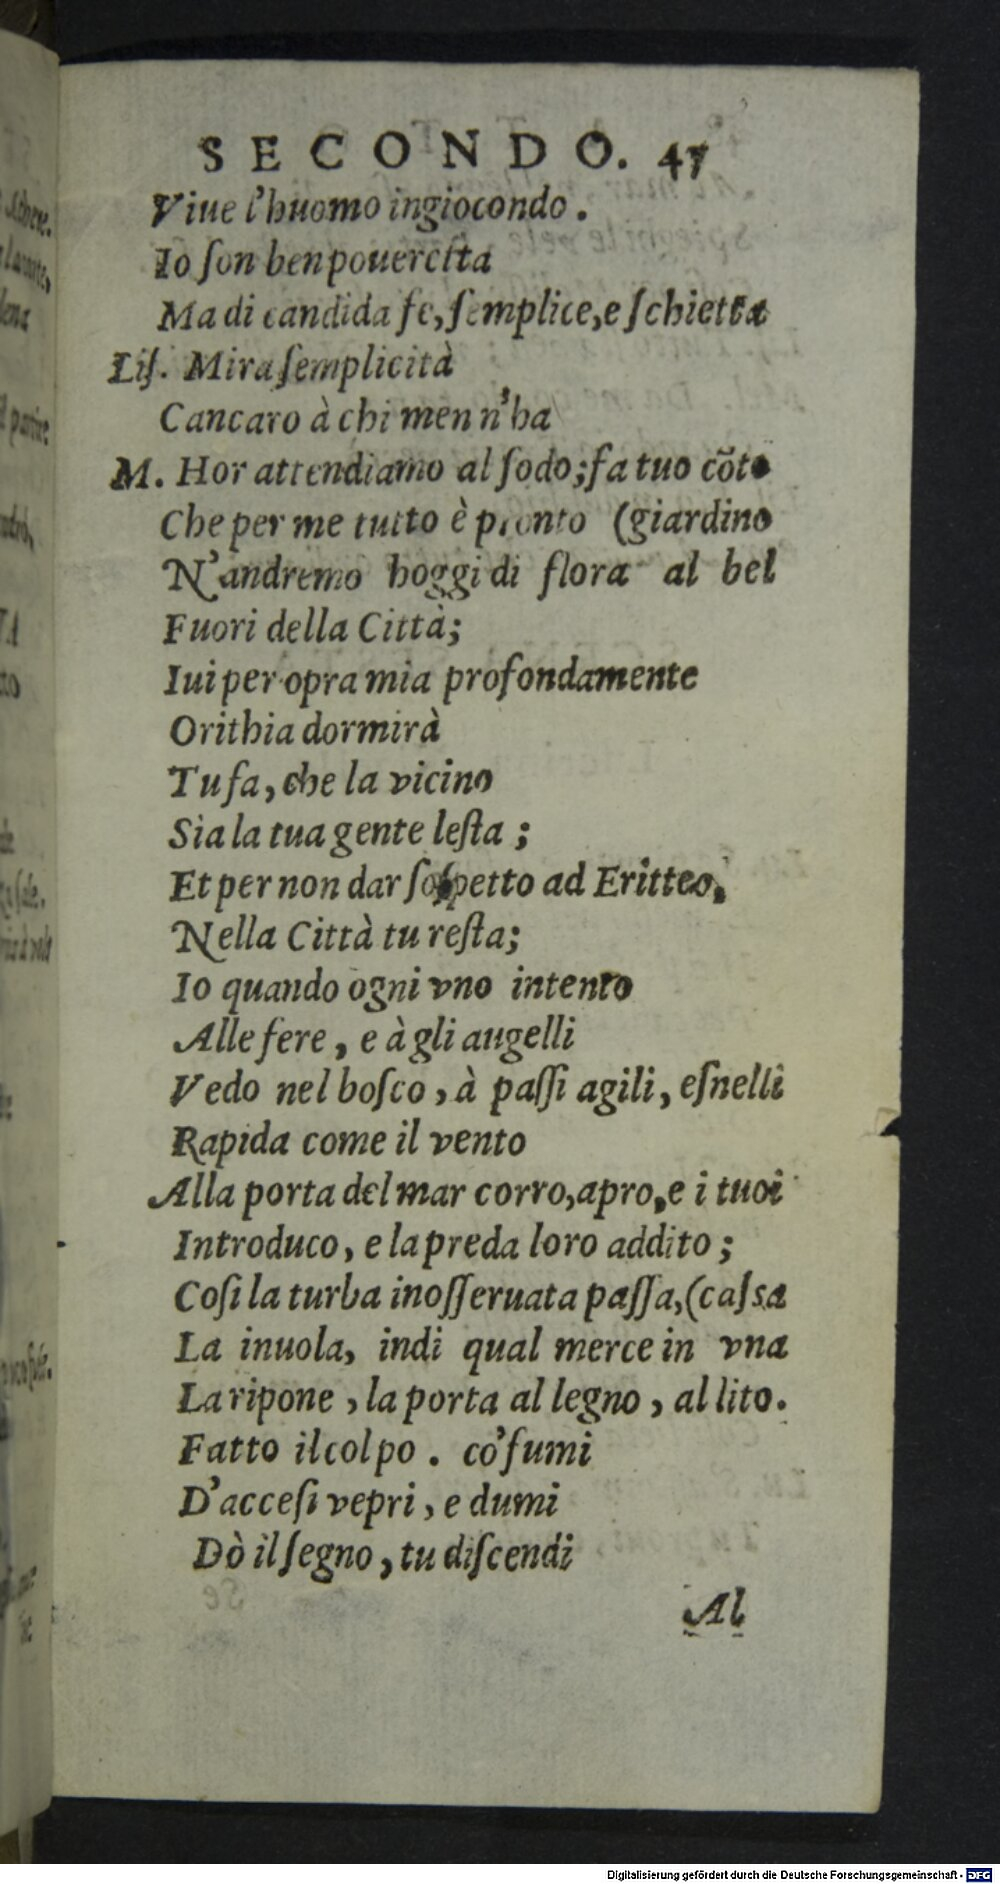 SECONDO. 47
Viue l'huomo ingiocondo.
Io ſon ben poueretta
Ma di candida fe, ſemplice, e ſchietta
Liſ. Mira ſemplicità
Cancaro à chi men n'ha
M. Hor attendiamo al ſodo; fa tuo cõto
Che per me tutto è pronto (giardino
N'andremo hoggi di flora al bel
Fuori della Città;
Iui per opra mia profondamente
Orithia dormirà
Tu fa, che la vicino
Sia la tua gente leſta ;
Et per non dar ſoſpetto ad Eritteo,
Nella Città tu reſta;
Io quando ogni vno intento
Alle fere, e à gli augelli
Vedo nel boſco, à paſſi agili, eſnelli
Rapida come il vento
Alla porta del mar corro, apro, e i tuoi
Introduco, e la preda loro addito ;
Coſi la turba inoſſeruata paſſa, (caſsa
La inuola, indi qual merce in vna
La ripone, la porta al legno, al lito.
Fatto il colpo. co' fumi
D'acceſi vepri, e dumi
Dò il ſegno, tu diſcendi
Al
Digitalisierung gefördert durch die Deutsche Forschungsgemeinschaft - DFG